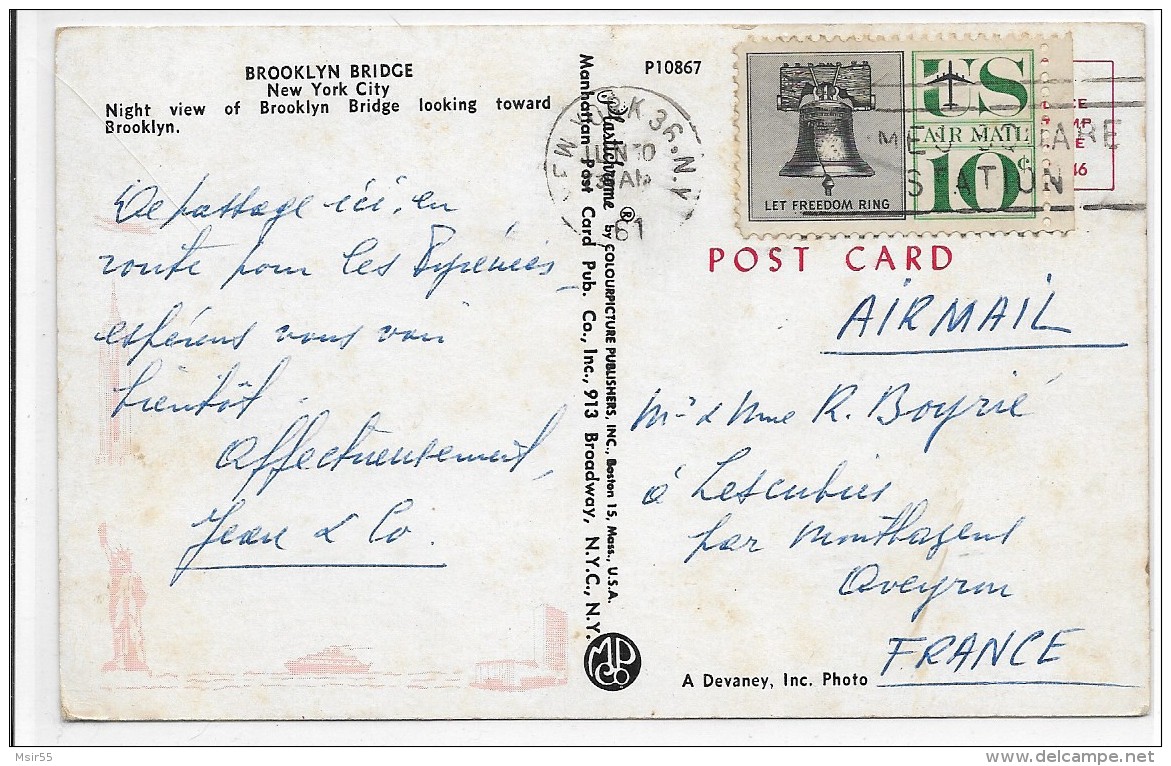 BROOKLYN BRIDGE
New York City
Night view of Brooklyn Bridge looking toward
Brooklyn.
De passage ici, en
route pour les Pyrénées,
espérons vous voir
bientôt.
Affectueusement,
Jean & Co.
Plastichrome ® by COLOURPICTURE PUBLISHERS, INC., Boston 15, Mass., U.S.A.
Manhattan Post Card Pub. Co., Inc., 913 Broadway, N.Y.C., N.Y.
P10867
K 36. N.Y
JUN 30
AM
61
LET FREEDOM RING
US
AIR MAIL
10¢
MES SQUARE
STATION
POST CARD
AIRMAIL
Mr & Mme R. Boyrié
à Lescubiès
par Montbazens
Aveyron
FRANCE
A Devaney, Inc. Photo
Msir55
delcampe.net